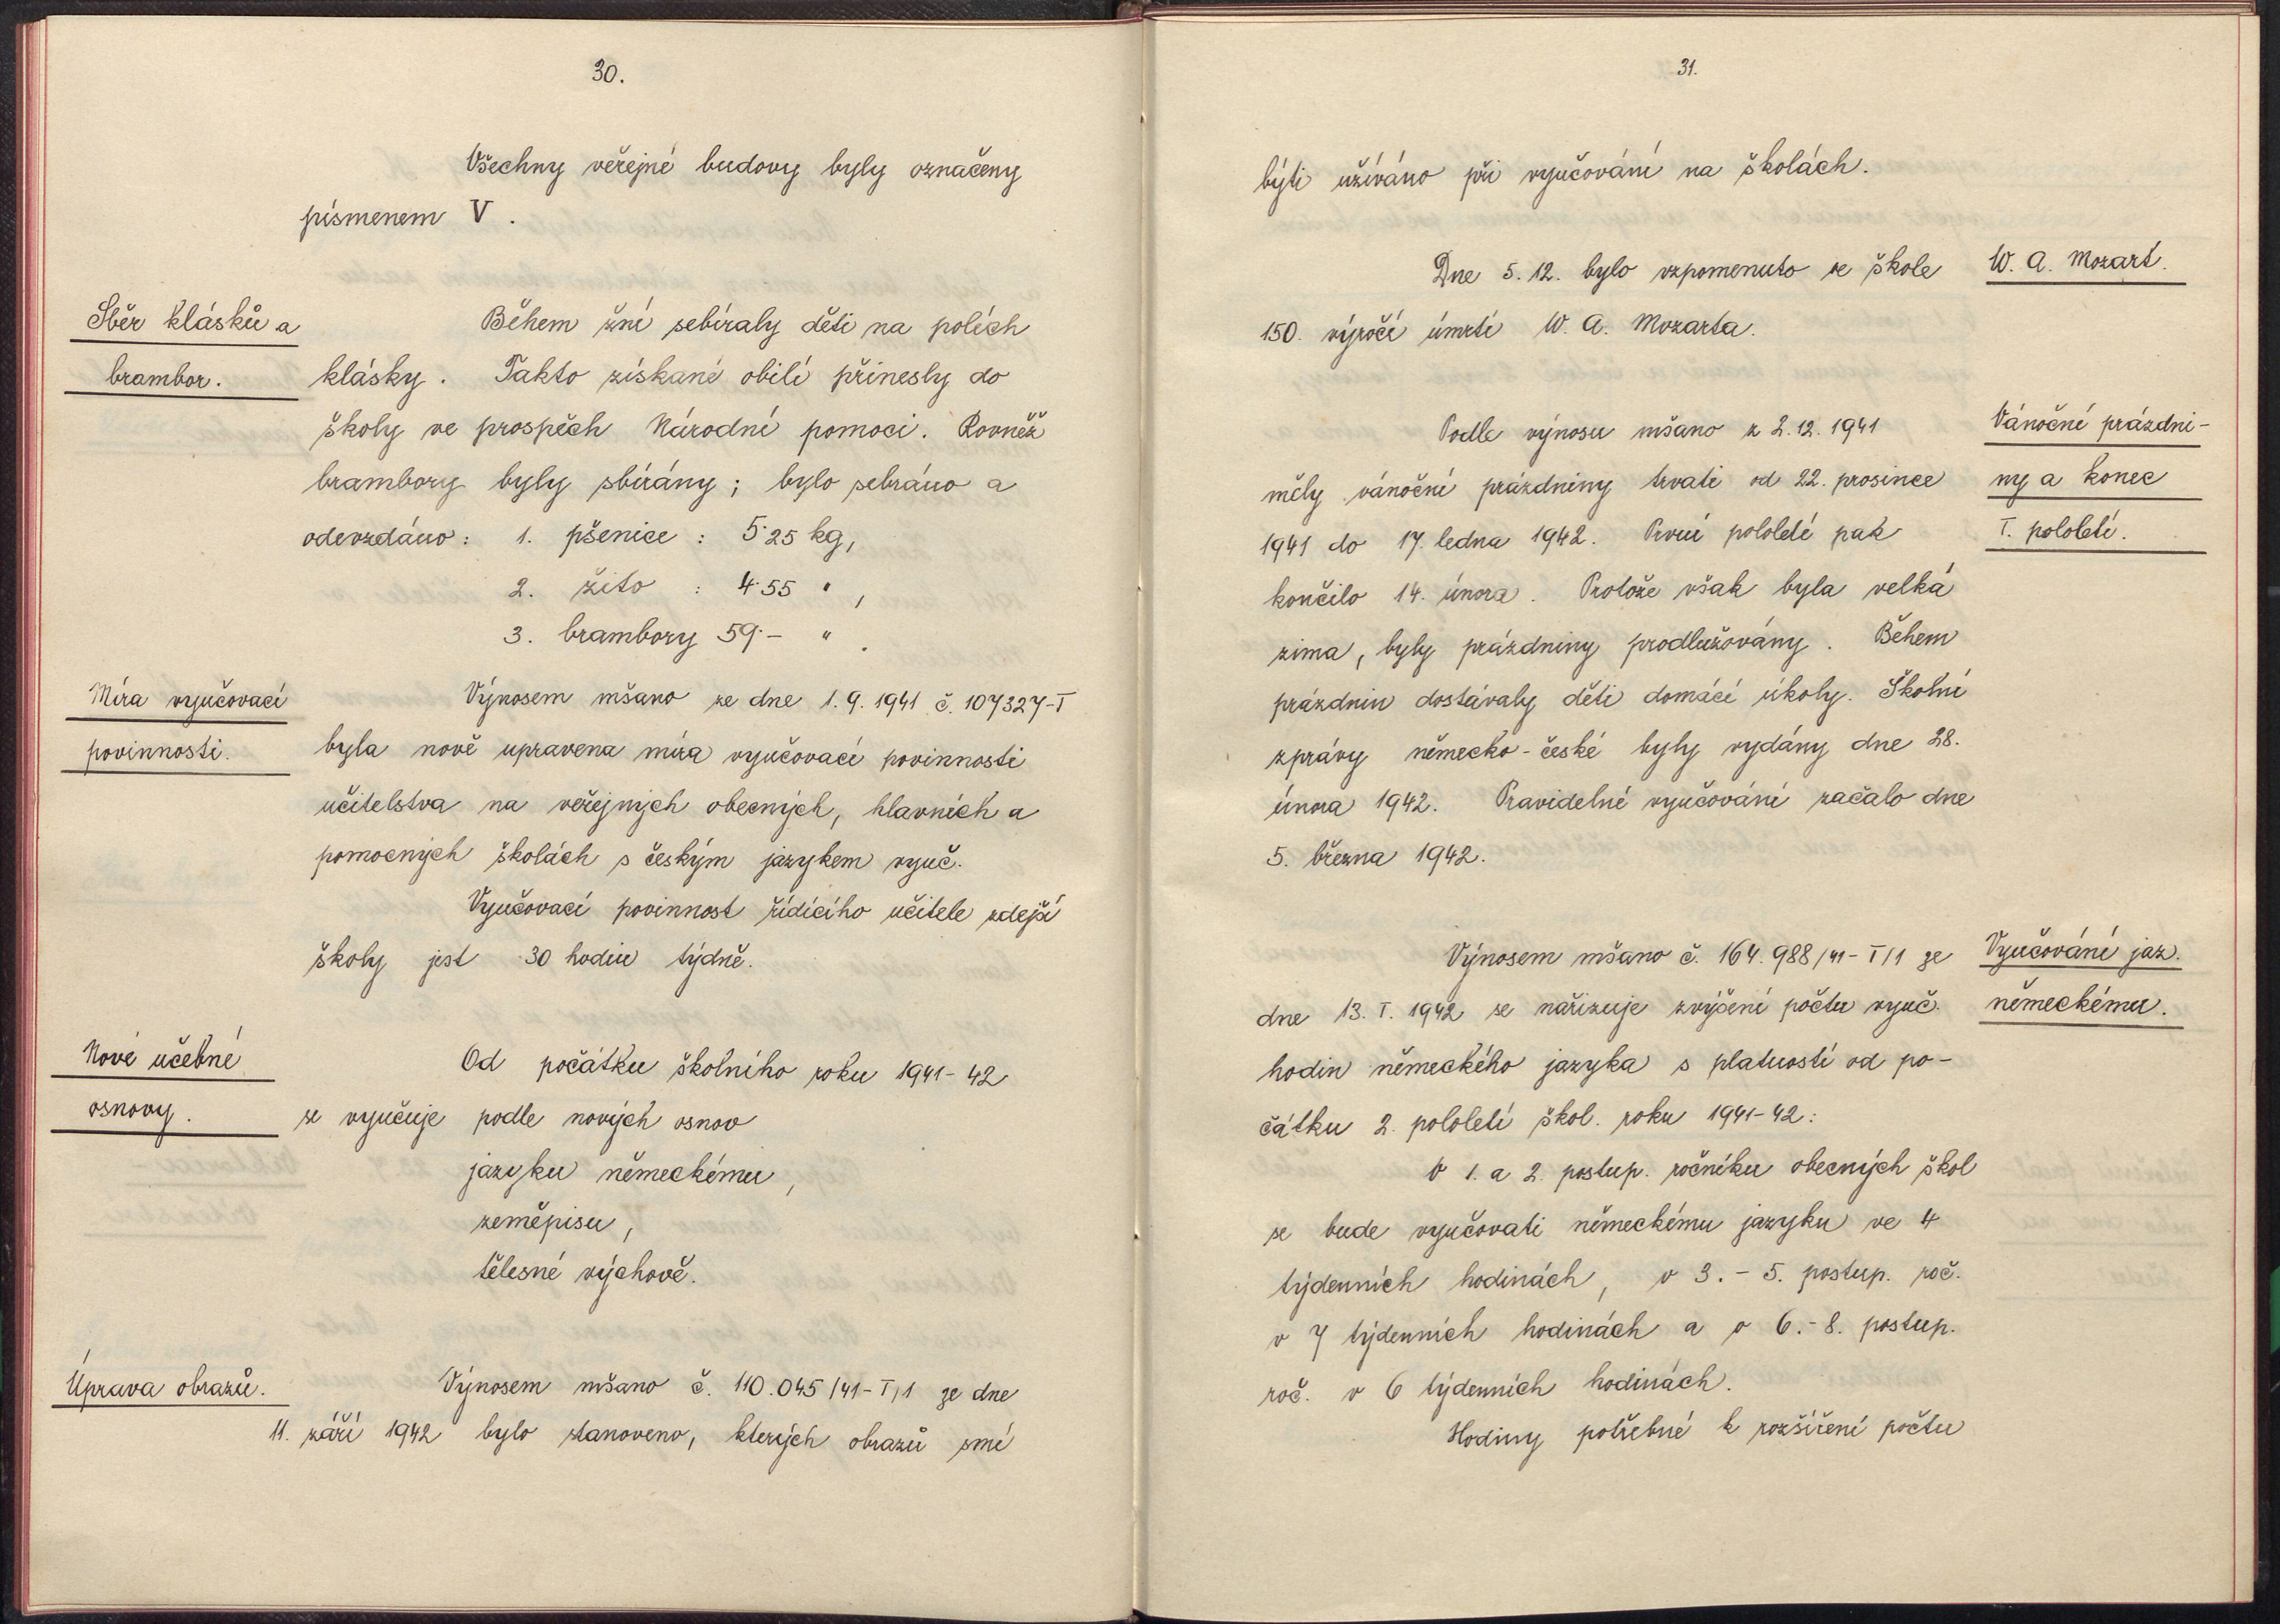 30.
Všechny veřejné budovy byly označeny
písmenem V.
Sběr klásků a
brambor.
Během žní sebíraly děti na polích
klásky. Takto získané obilí přinesly do
školy ve prospěch Národní pomoci. Rovněž
brambory byly sbírány; bylo sebráno a
odevzdáno: 1. pšenice : 5·25 kg,
2. žito : 4·55 " ,
3. brambory 59·- " .
Míra vyučovací
povinnosti.
Výnosem mšano ze dne 1.9.1941 č. 107327-I
byla nově upravena míra vyučovací povinnosti
učitelstva na veřejných obecných, hlavních a
pomocných školách s českým jazykem vyuč.
Vyučovací povinnost řídícího učitele zdejší
školy jest 30 hodin týdně.
Nové učebné
osnovy.
Od počátku školního roku 1941-42
se vyučuje podle nových osnov
jazyku německému,
zeměpisu,
tělesné výchově.
Úprava obrazů.
Výnosem mšano č. 110.045/41-I/1 ze dne
11. září 1942 bylo stanoveno, kterých obrazů smí
31.
býti užíváno při vyučování na školách.
Dne 5.12. bylo vzpomenuto ve škole
150. výročí úmrtí W. A. Mozarta.
W. A. Mozart.
Podle výnosu mšano z 2.12.1941
měly vánoční prázdniny trvati od 22. prosince
1941 do 17. ledna 1942. První pololetí pak
končilo 14. února. Protože však byla velká
zima, byly prázdniny prodlužovány. Během
prázdnin dostávaly děti domácí úkoly. Školní
zprávy německo-české byly vydány dne 28.
února 1942. Pravidelné vyučování začalo dne
5. března 1942.
Vánoční prázdni-
ny a konec
I. pololetí.
Výnosem mšano č. 164.988/41-I/1 ze
dne 13. I. 1942 se nařizuje zvýšení počtu vyuč.
hodin německého jazyka s platností od po-
čátku 2. pololetí škol. roku 1941-42:
V 1. a 2. postup. ročníku obecných škol
se bude vyučovati německému jazyku ve 4
týdenních hodinách, v 3.-5. postup. roč.
v 7 týdenních hodinách a v 6.-8. postup.
roč. v 6 týdenních hodinách.
Hodiny potřebné k rozšíření počtu
Vyučování jaz.
německému.